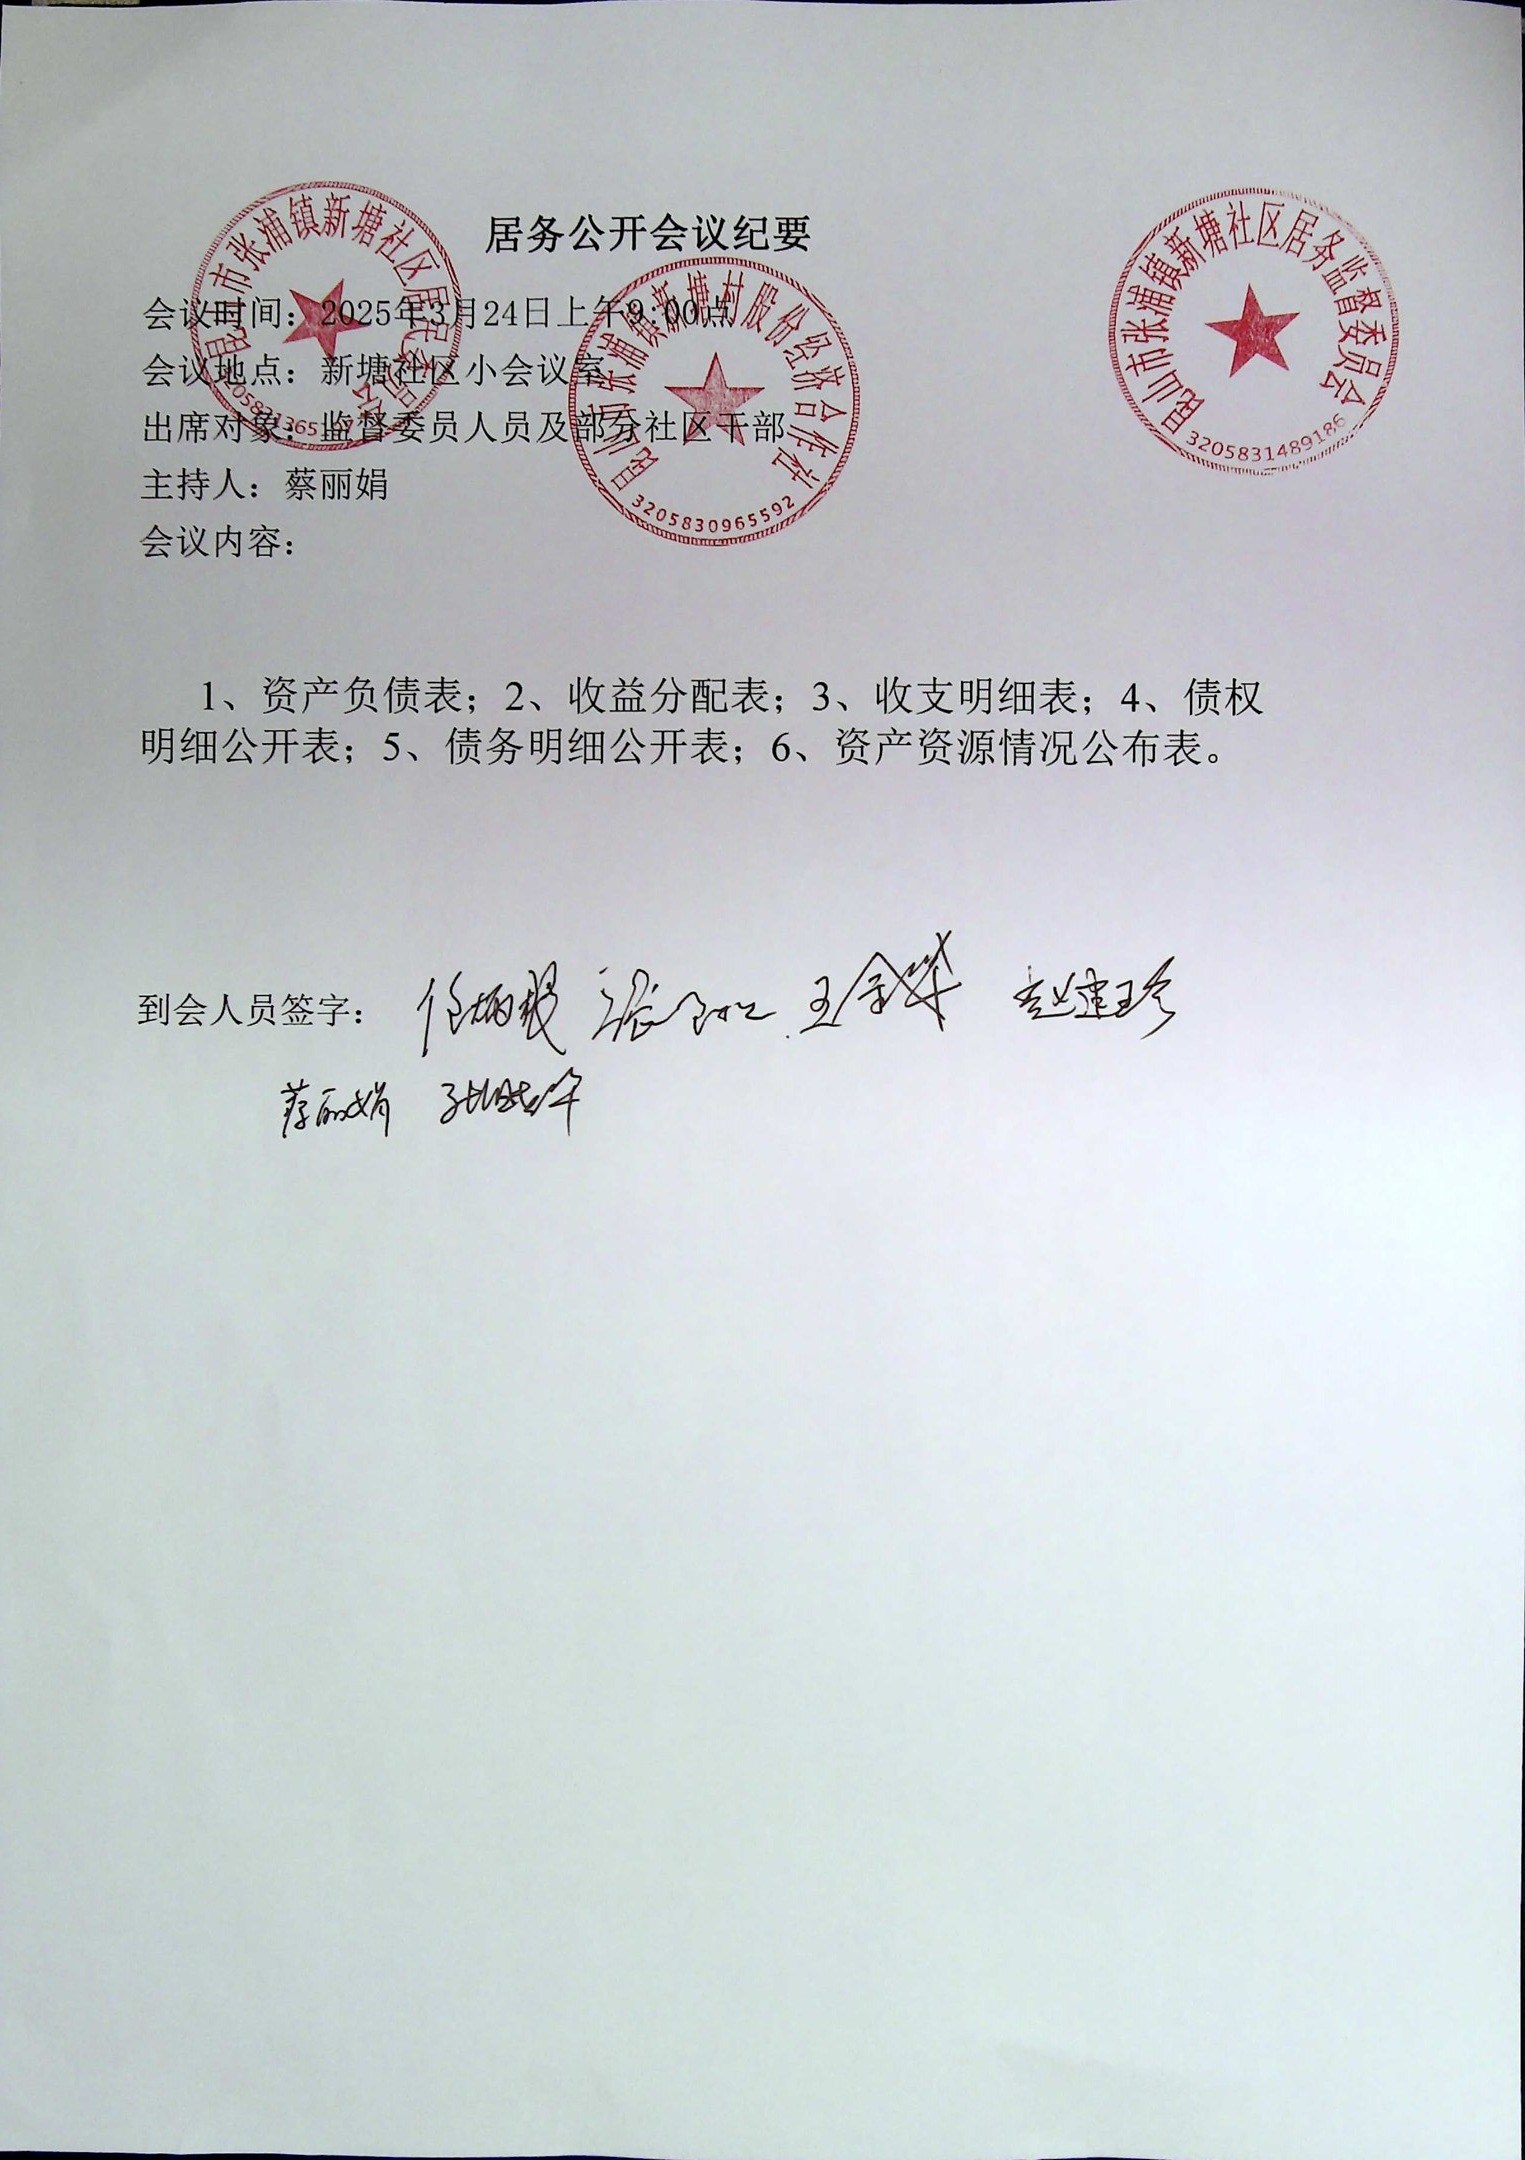 居务公开会议纪要
昆山市张浦镇新塘社区居民委员会
昆山市张浦镇新塘村股份经济合作社
3205830965592
昆山市张浦镇新塘社区居务监督委员会
3205831489186
会议时间：2025年3月24日上午9:00点
会议地点：新塘社区小会议室
出席对象：监督委员人员及部分社区干部
主持人：蔡丽娟
会议内容：
1、资产负债表；2、收益分配表；3、收支明细表；4、债权
明细公开表；5、债务明细公开表；6、资产资源情况公布表。
到会人员签字： 赵建珍
蔡丽娟